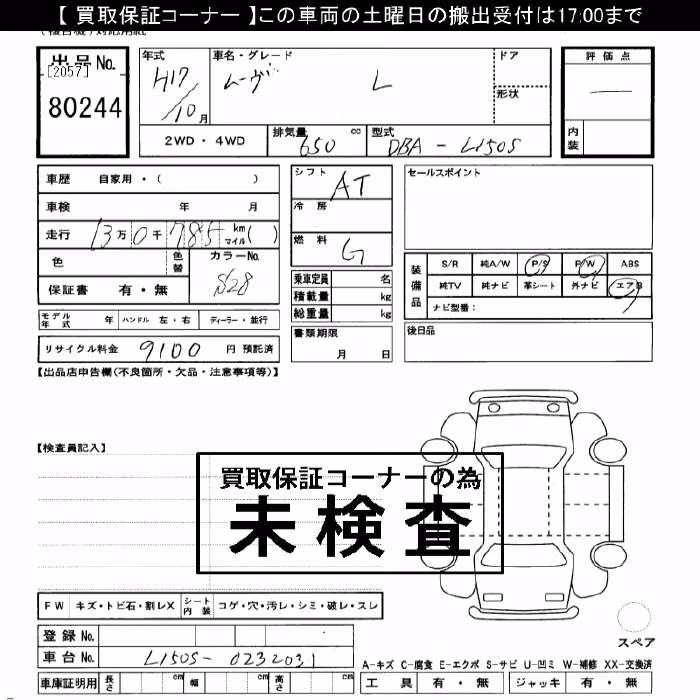 【 買取保証コーナー 】この車両の土曜日の搬出受付は17:00まで
出品 No.
[2057]
80244
年式
H17/10月
車名・グレード
ムーヴ L
ドア
形状
評価点
内装
2WD・4WD
排気量 650 cc
型式 DBA-L150S
車歴 自家用・( )
車検 年 月
走行 13万0千785 km マイル( )
色 色替 カラーNo. S28
保証書 有・無
シフト AT
冷房
燃料 G
乗車定員 名
積載量 kg
総重量 kg
セールスポイント
装備品
S/R 純A/W P/S P/W ABS
純TV 純ナビ 革シート 外ナビ エアB
ナビ型番:
モデル年式 年 ハンドル 左・右 ディーラー・並行
書類期限 月 日
後日品
リサイクル料金 9100 円 預託済
【出品店申告欄(不良箇所・欠品・注意事項等)】
【検査員記入】
買取保証コーナーの為
未検査
FW キズ・トビ石・割レX シート内装 コゲ・穴・汚レ・シミ・破レ・スレ
スペア
登録 No.
車台 No. L150S-0232031
A-キズ C-腐食 E-エクボ S-サビ U-凹ミ W-補修 XX-交換済
車庫証明用 長さ cm 幅 cm 高さ cm
工具 有・無 ジャッキ 有・無